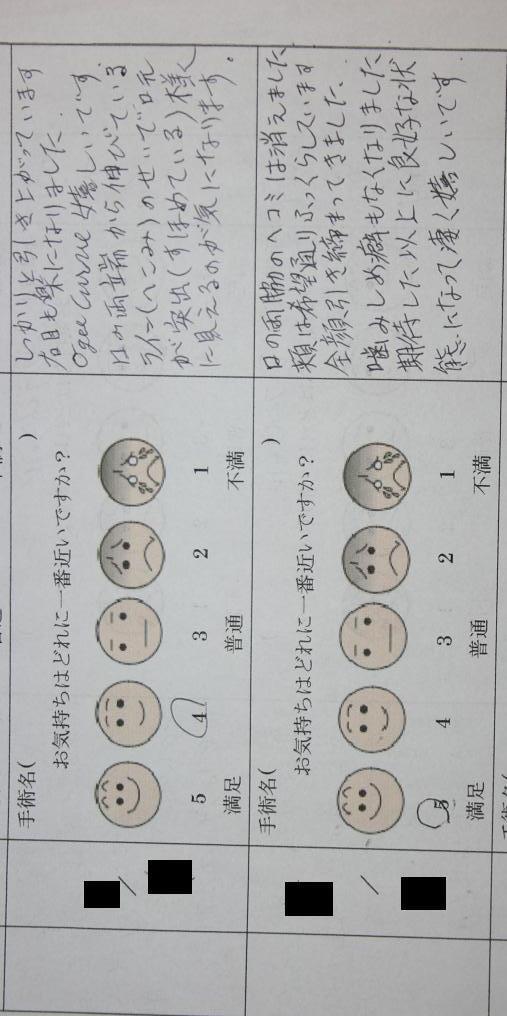 手術名(　　)
お気持ちはどれに一番近いですか?
5 4 3 2 1
満足 普通 不満
しっかりと引き上がっています
目も楽になりました.
Ogee curve 嬉しいです.
口の両端から伸びている
ライン(へこみ)のせいで口元
が突出(すぼめている)様
に見えるのが気になります。
手術名(　　)
お気持ちはどれに一番近いですか?
5 4 3 2 1
満足 普通 不満
口の両脇のヘコミは消えました
頬は希望通りふっくらしています
全顔引き締まってきました.
噛みしめ癖もなくなりました
期待した以上に良好な状
態になって凄く嬉しいです.